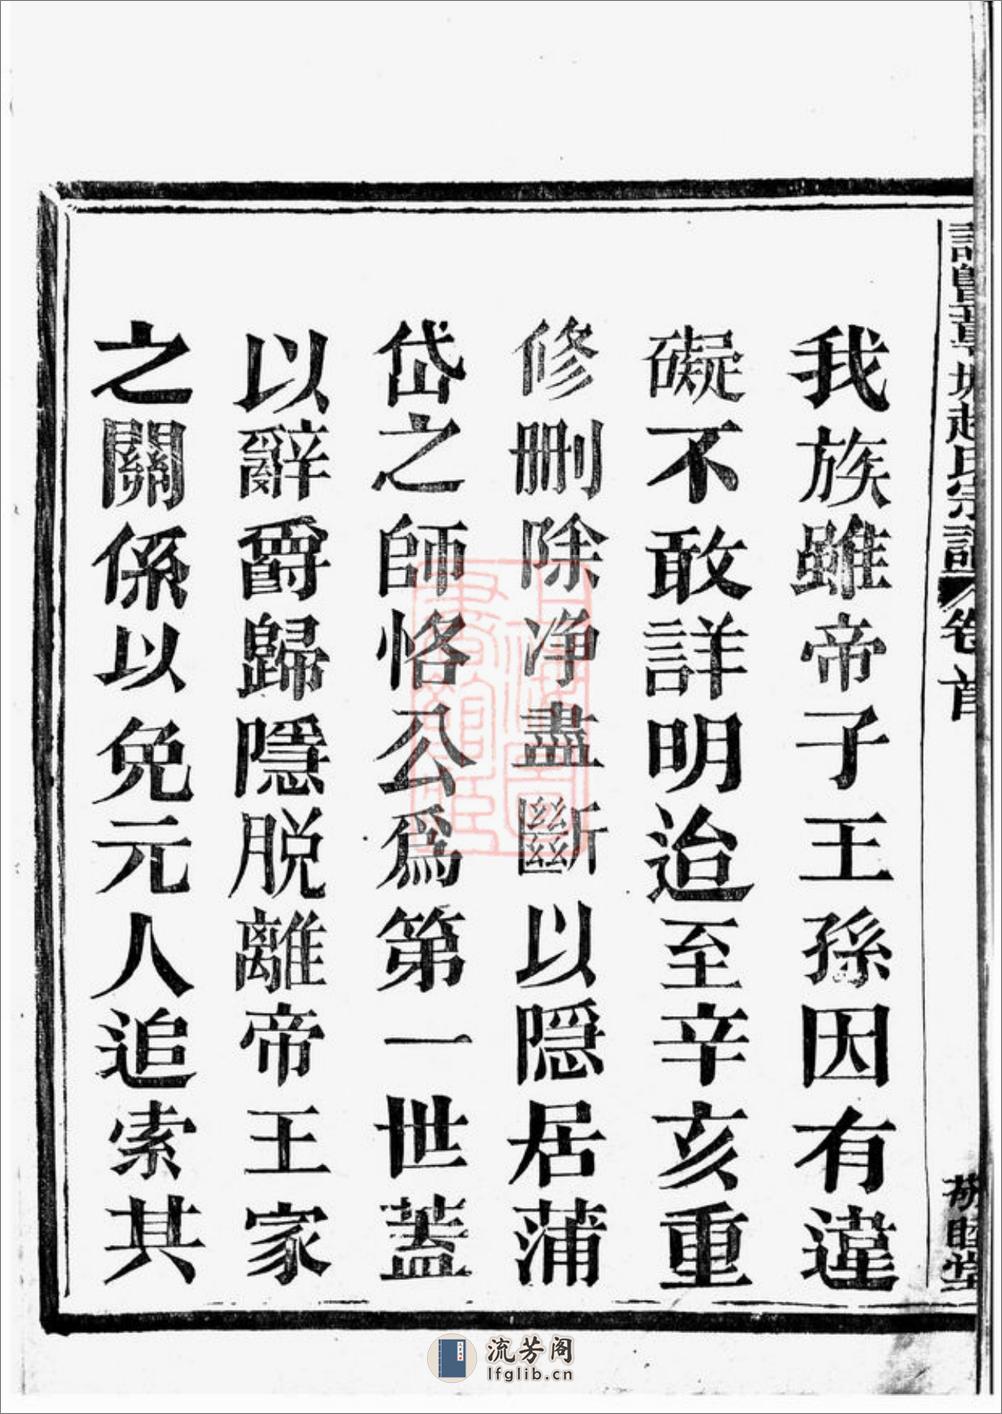 趙氏宗譜 卷首
睦堂
我族雖帝子王孫因有違
礙不敢詳明迨至辛亥重
修刪除净盡斷以隠居蒲
岱之師恪公爲第一世蓋
以辭爵歸隱脱離帝王家
之關係以免元人追索其
流芳阁
lfglib.cn